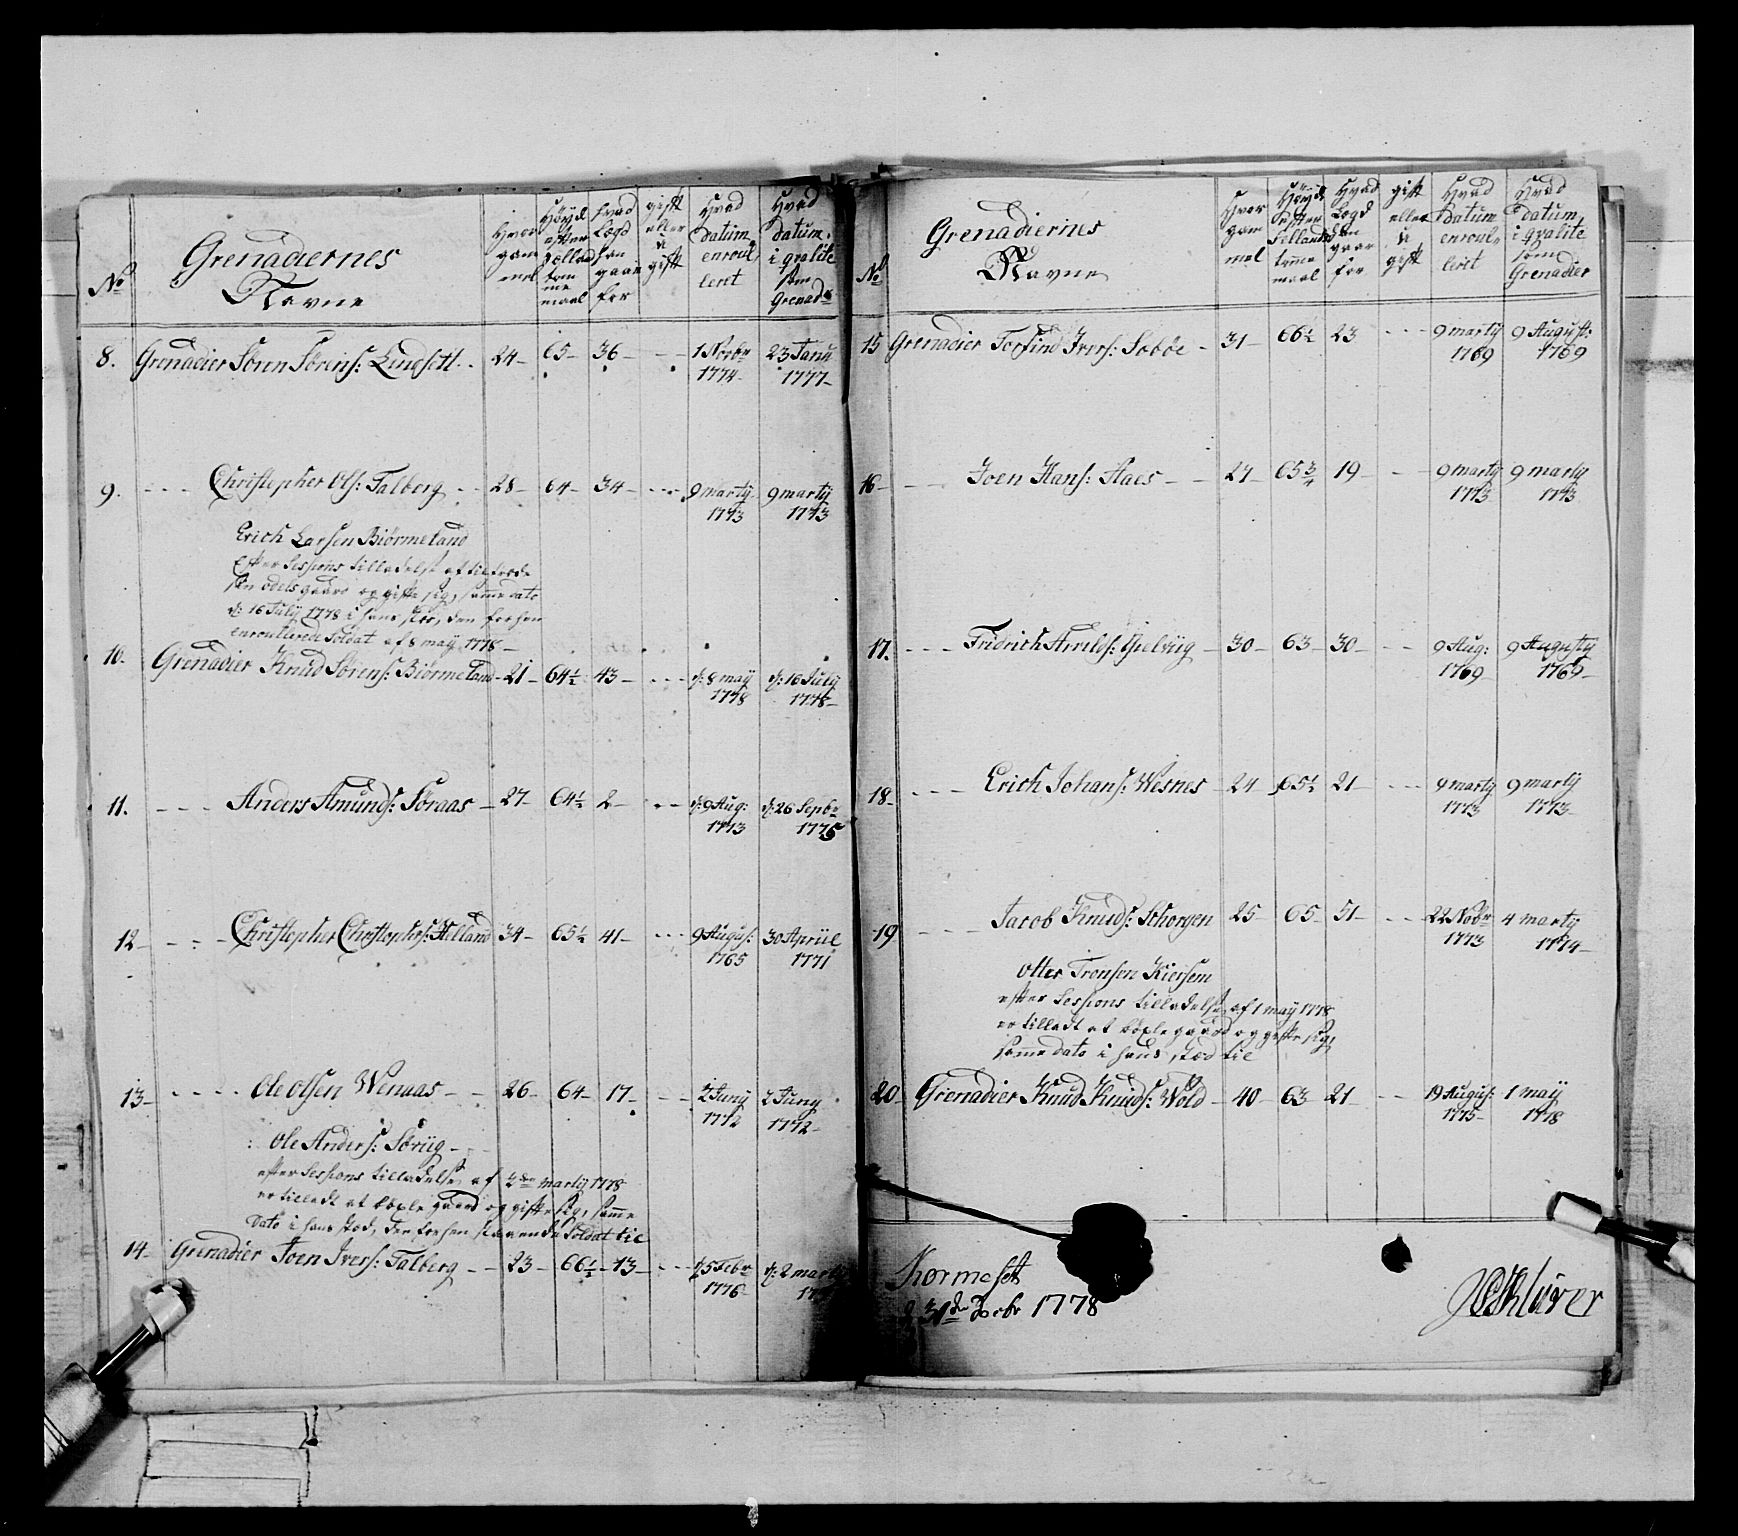 No
Grenadiernes
Navne
Hvor
gam
mel
Høyde
efter
Sællands
tom
me
maal
hvad
Lægd
han
gaar
for
gift
eller
u
gift
Hvad
datum
enroul
leret
Hvad
datum
i qvalité
som
Grenadr
8. Grenadier Sønn Sørens: Lindsett 24 65 36 1 Novbr 23 Janu
1774 1777
9. Christopher Ols: Talberg 28 64 34 9 marty 9 marty
1773 1773
Erich Larsen Biørmeland
Efter Sessions tilladelse af tiltræde
sin odels gaard og gifte sig, samme dato
d: 16 July 1778 i hans stæd, den forhen
enroullerede Soldat af 8 may 1778
10. Grenadier Knud Sørens: Biørmeland 21 64½ 43 d: 8 may d: 16 July
1778 1778
11. Anders Amunds: Søraas 27 64½ 2 d: 9 Aug: d: 26 Sepbr
1773 1775
12 Christopher Christophers: Hilland 34 65½ 41 9 Augus: 30 Apriil
1765 1771
13 Ole Olsen Wenaas 26 64 17 2 Juny 2 Juny
1772 1772
Ole Anders: Sørüg
efter Sessions tilladelse af 2den marty 1778
er tilladt at böxle gaard og gifte sig, samme
Dato i hans stæd, den forhen staaende Soldat til
14 Grenadier Joen Ivers: Talberg 23 66½ 13 d: 5 Febr d: 2 marty
1776
No
Grenadiernes
Navne
Hvor
gam
mel
Høyde
efter
Sellands
tomme
maal
Hvad
Lægd
han
gaar
for
gift
eller
u
gift
Hvad
datum
enroul
leret
Hvad
datum
i qvalite
som
Grenadier
15 Grenadier Torfind Ivers: Søböe 31 66½ 23 9 marty 9 August:
1769 1769
16 Joen Hans: Haes 27 65¾ 19 9 marty 9 marty
1773 1773
17. Fridrich Arrilds: Gielviig 30 63 30 9 Aug: 9 Augusty
1769 1769
18 Erich Johans: Wesnes 24 65½ 21 9 marty 9 marty
1773 1773
19 Jacob Knuds: Schorgen 25 65 51 22 Nobr 4 marty
1773 1774
Otter Tronsen Kiersem
efter Sessions tilladelse, af 1 may 1778
er tilladt at böxle gaard og gifte sig,
samme dato i hans stæd til
20 Grenadier Knud Knuds: Wold 40 63 21 19 Augus: 1 may
1775 1778
Kormeset
d 31de Decbr 1778
Schlüver